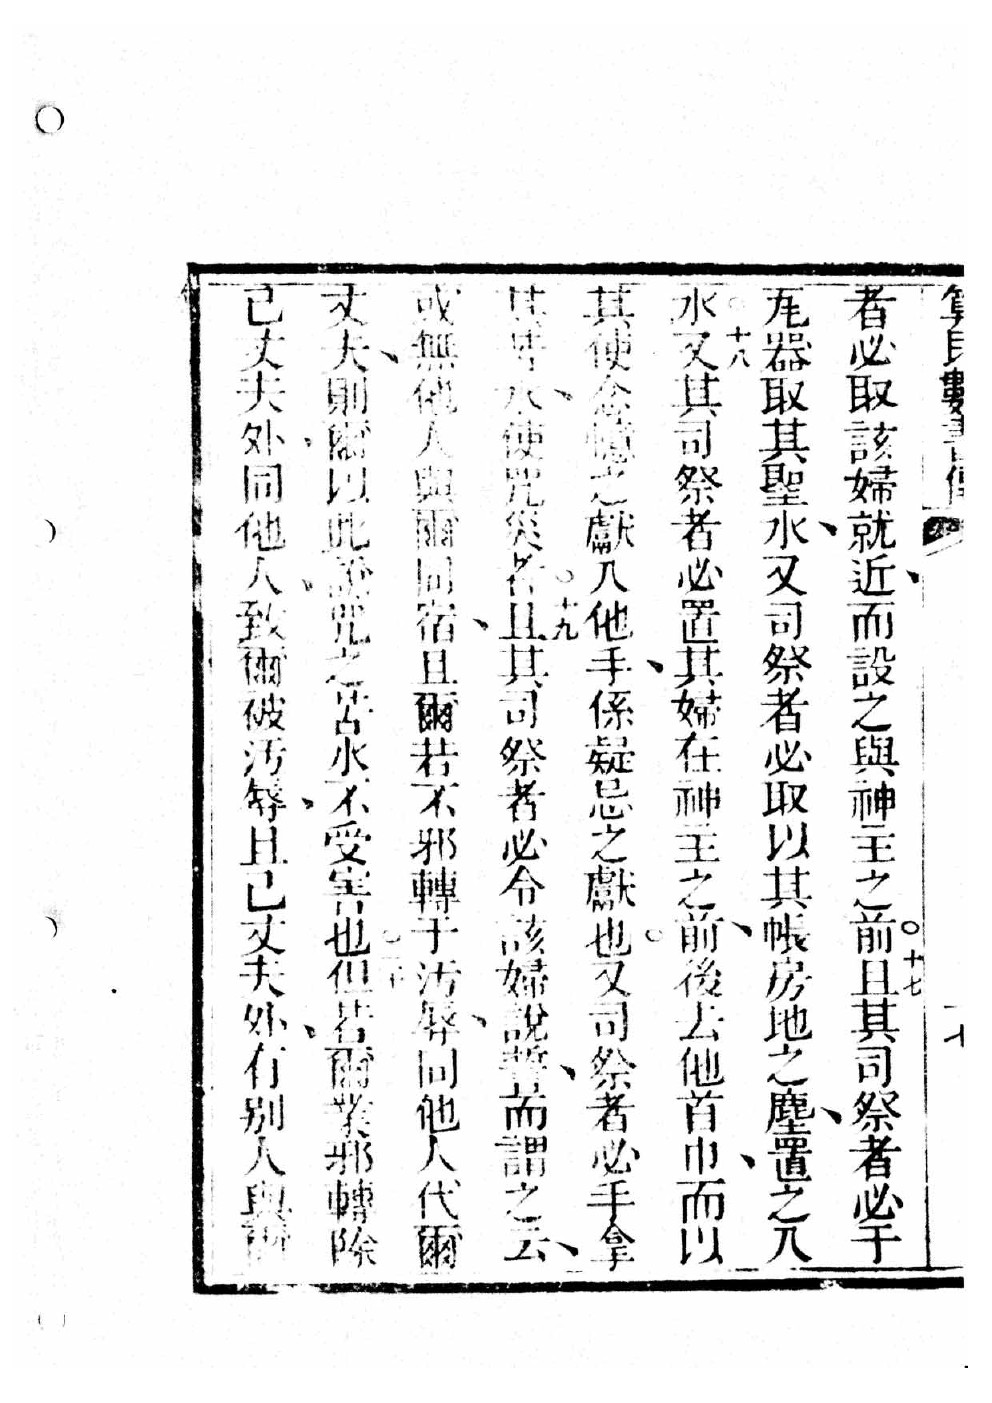 算民數書傳
十七
者必取該婦就近、而設之與神主之前○十七且其司祭者必于
瓦器取其聖水、又司祭者必取以其帳房地之塵、置之入
水○十八又其司祭者必置其婦在神主之前、後去他首巾、而以
其使念憶之獻入他手、係疑忌之獻也○又司祭者必手拿
其苦水、使咒災者○十九且其司祭者必令該婦說誓、而謂之云、
或無他人與爾同宿、且爾若不邪轉于污辱、同他人代爾
丈夫、則爾以此證咒之苦水不受害也○二十但若爾業邪轉除
己丈夫外、同他人、致爾被污辱、且己丈夫外、有別人與爾